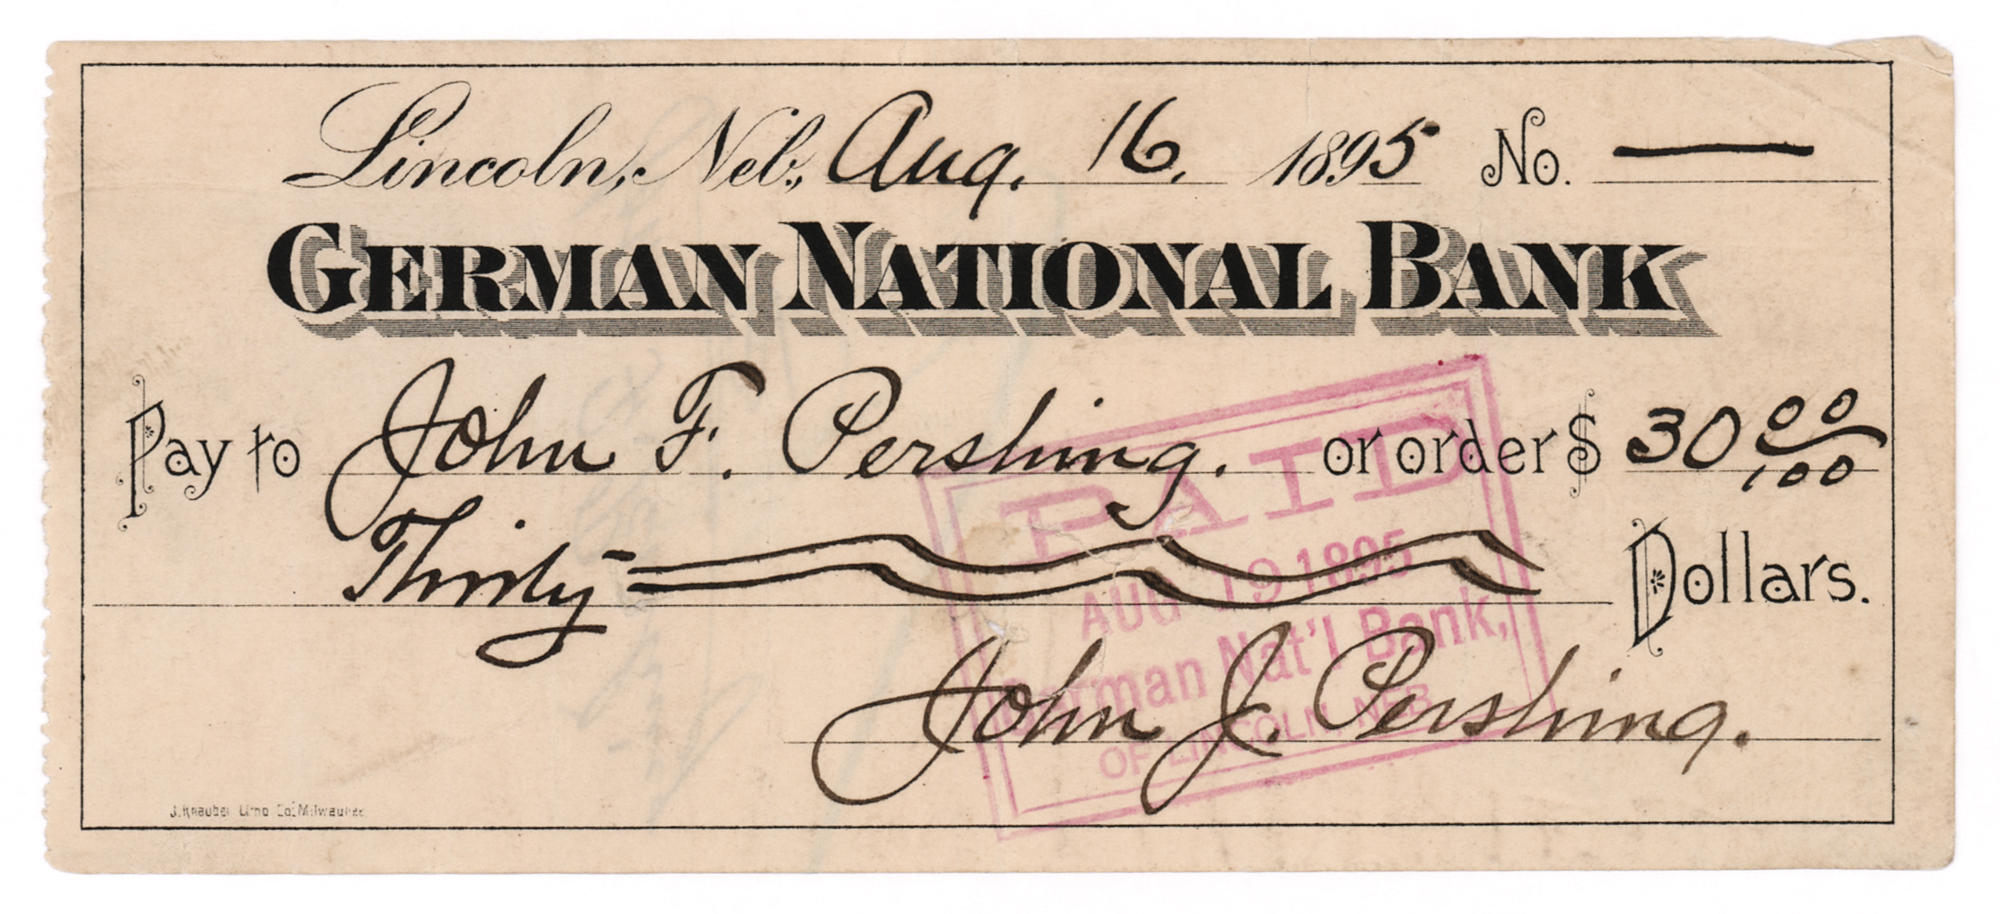 Lincoln, Neb., Aug. 16. 1895 No. —
GERMAN NATIONAL BANK
Pay to John F. Pershing. or order $ 30 00/100
Thirty Dollars.
John J. Pershing.
PAID
AUG 19 1895
German Nat'l Bank,
OF LINCOLN, NEB.
J. Knauber Litho Co. Milwaukee